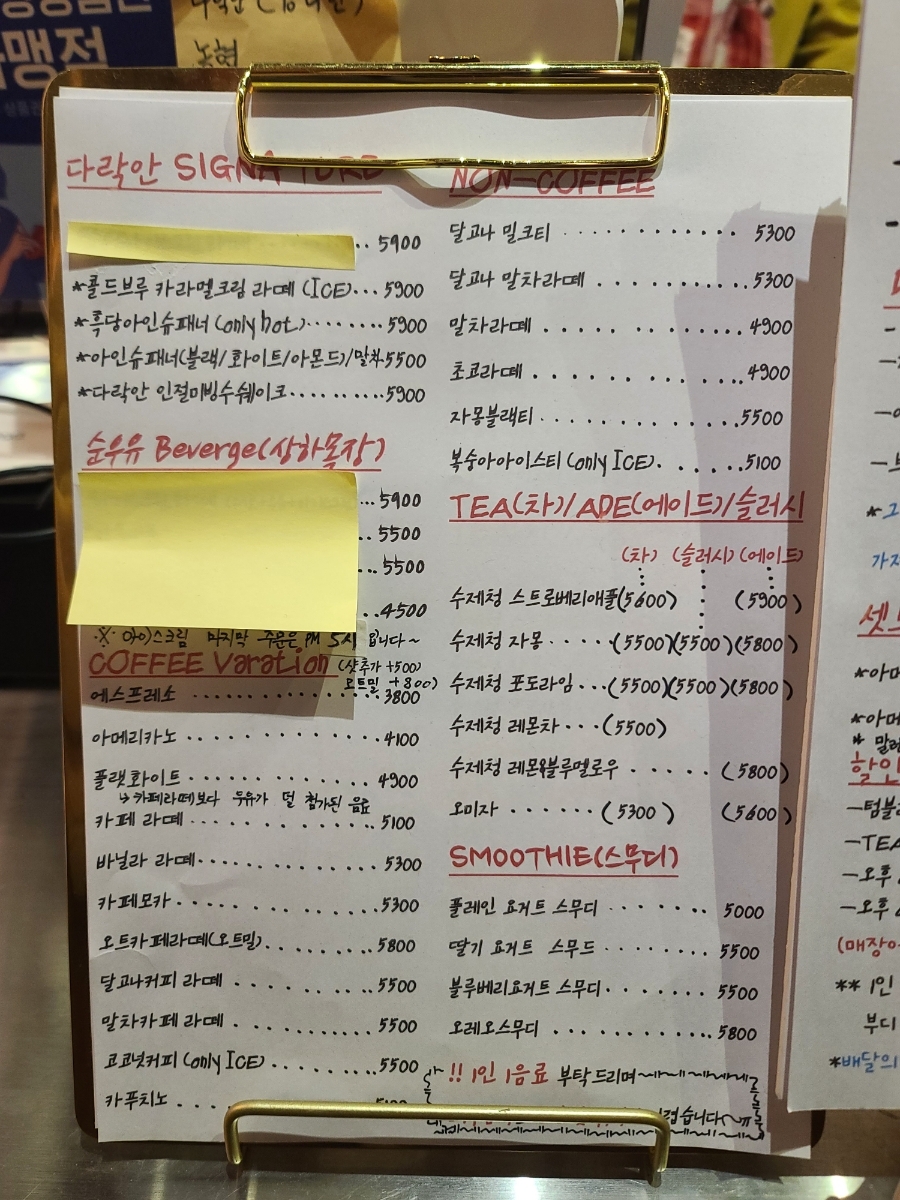 맹점
농협
다락안 SIGNATURE
.. 5900
*콜드브루 카라멜크림 라떼 (ICE)... 5900
*흑당아인슈패너 (only hot)........ 5900
*아인슈패너(블랙/화이트/아몬드)/말차 5500
*다락안 인절미빙수쉐이크.......... 5900
순우유 Beverge(상하목장)
... 5900
.. 5500
... 5500
.. 4500
※ 아이스크림 마지막 주문은 PM 5시 입니다~
COFFEE Varation (샷추가 +500)
오트밀 +800)
에스프레소 ............ 3800
아메리카노 ............ 4100
플랫화이트 ............ 4900
↳ 카페라떼보다 우유가 덜 첨가된 음료
카페 라떼 ............ 5100
바닐라 라떼............ 5300
카페모카 ............ 5300
오트카페라떼(오트밀)............ 5800
달고나커피 라떼 ............ 5500
말차카페 라떼 ............ 5500
코코넛커피 (only ICE)............ 5500
카푸치노 ....
NON-COFFEE
달고나 밀크티 ............ 5300
달고나 말차라떼 ............ 5300
말차라떼 ............ 4900
초코라떼 ............ 4900
자몽블랙티 ............ 5500
복숭아아이스티 (only ICE)....... 5100
TEA(차)/ADE(에이드)/슬러시
(차) (슬러시) (에이드)
수제청 스트로베리애플(5600) (5900)
수제청 자몽 ....(5500)(5500)(5800)
수제청 포도라임...(5500)(5500)(5800)
수제청 레몬차...(5500)
수제청 레몬&블루멜로우 ..... (5800)
오미자 ...... (5300) (5600)
SMOOTHIE(스무디)
플레인 요거트 스무디 ...... 5000
딸기 요거트 스무드 ....... 5500
블루베리요거트 스무디....... 5500
오레오스무디 .......... 5800
!! 1인 1음료 부탁드리며
습니다~ㅠ
셋
*아메
*아메
* 말
할인
-텀블
-TEA
-오후
-오후
(매장
** 1인
부디
*배달의